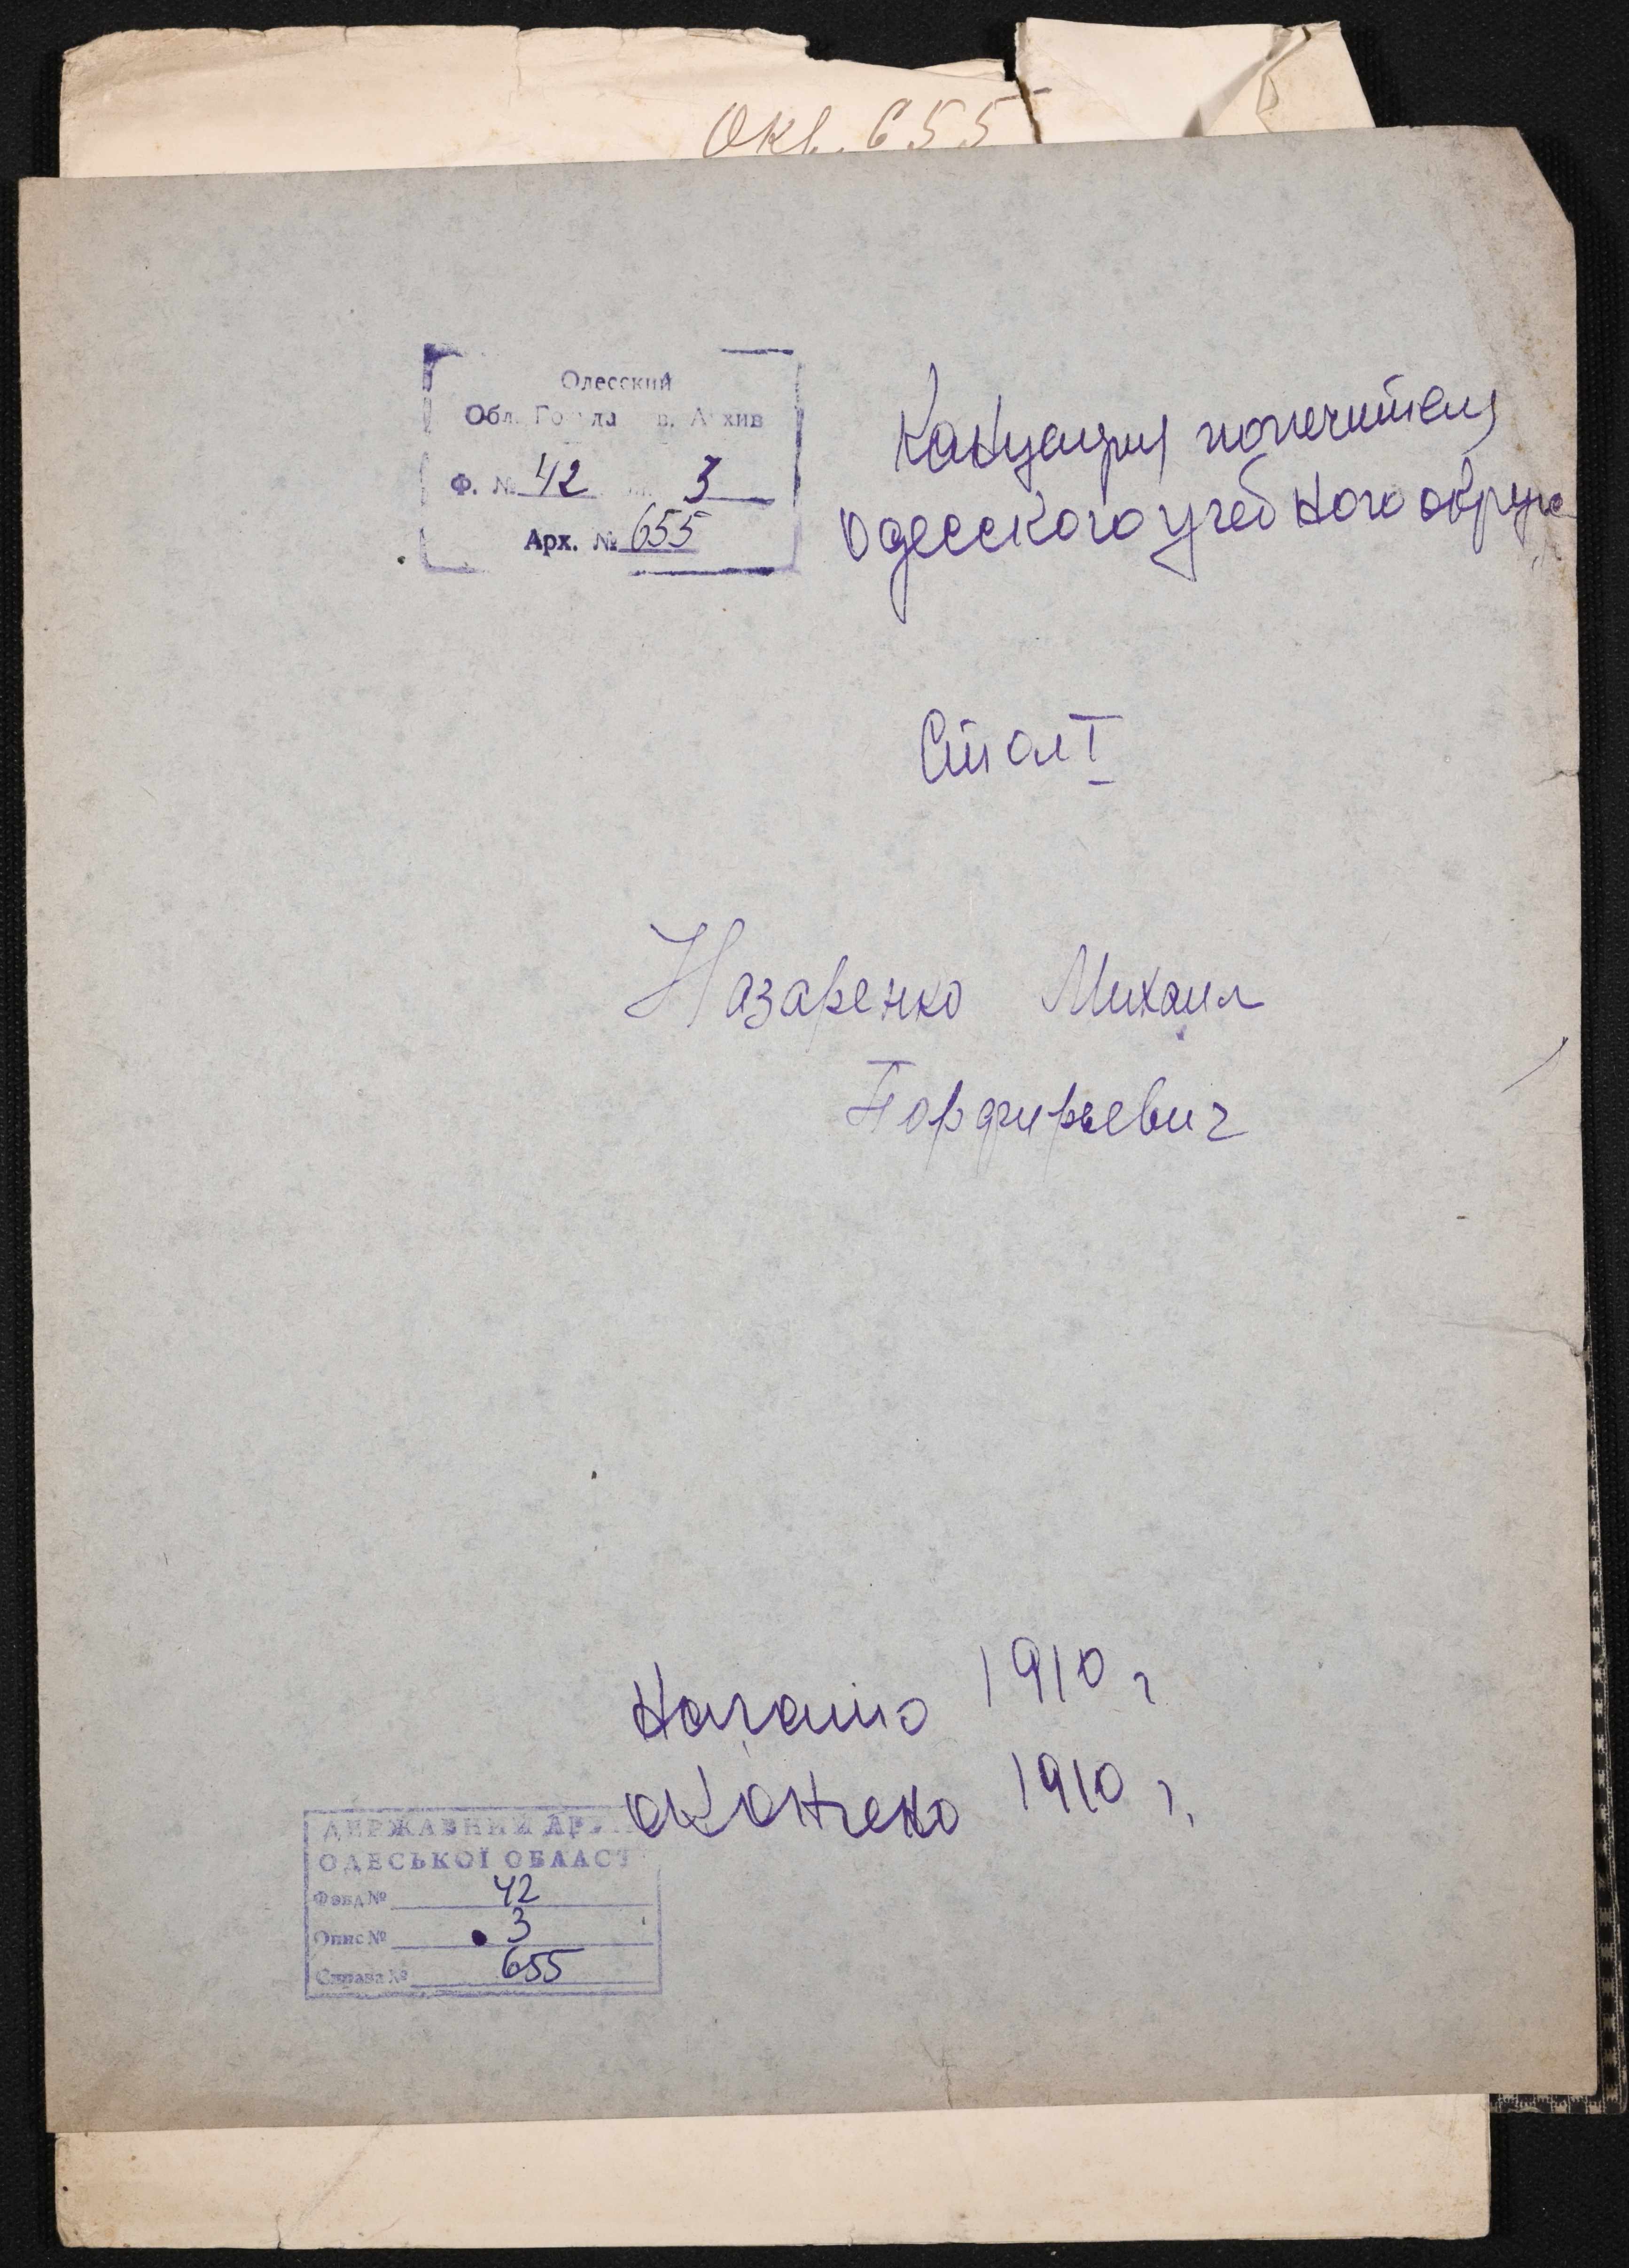 Окв. 655
Одесский
Обл. Го да в. Архив
Ф. № 42 3
Арх. № 655
Канцелярия попечителя
Одесского учебного округа
Стол I
Назаренко Михаил
Порфирьевич
Начато 1910 г
окончено 1910 г.
ДЕРЖАВНИЙ АРХ
ОДЕСЬКОЇ ОБЛАСТ
Фонд № 42
Опис № 3
Справа № 655